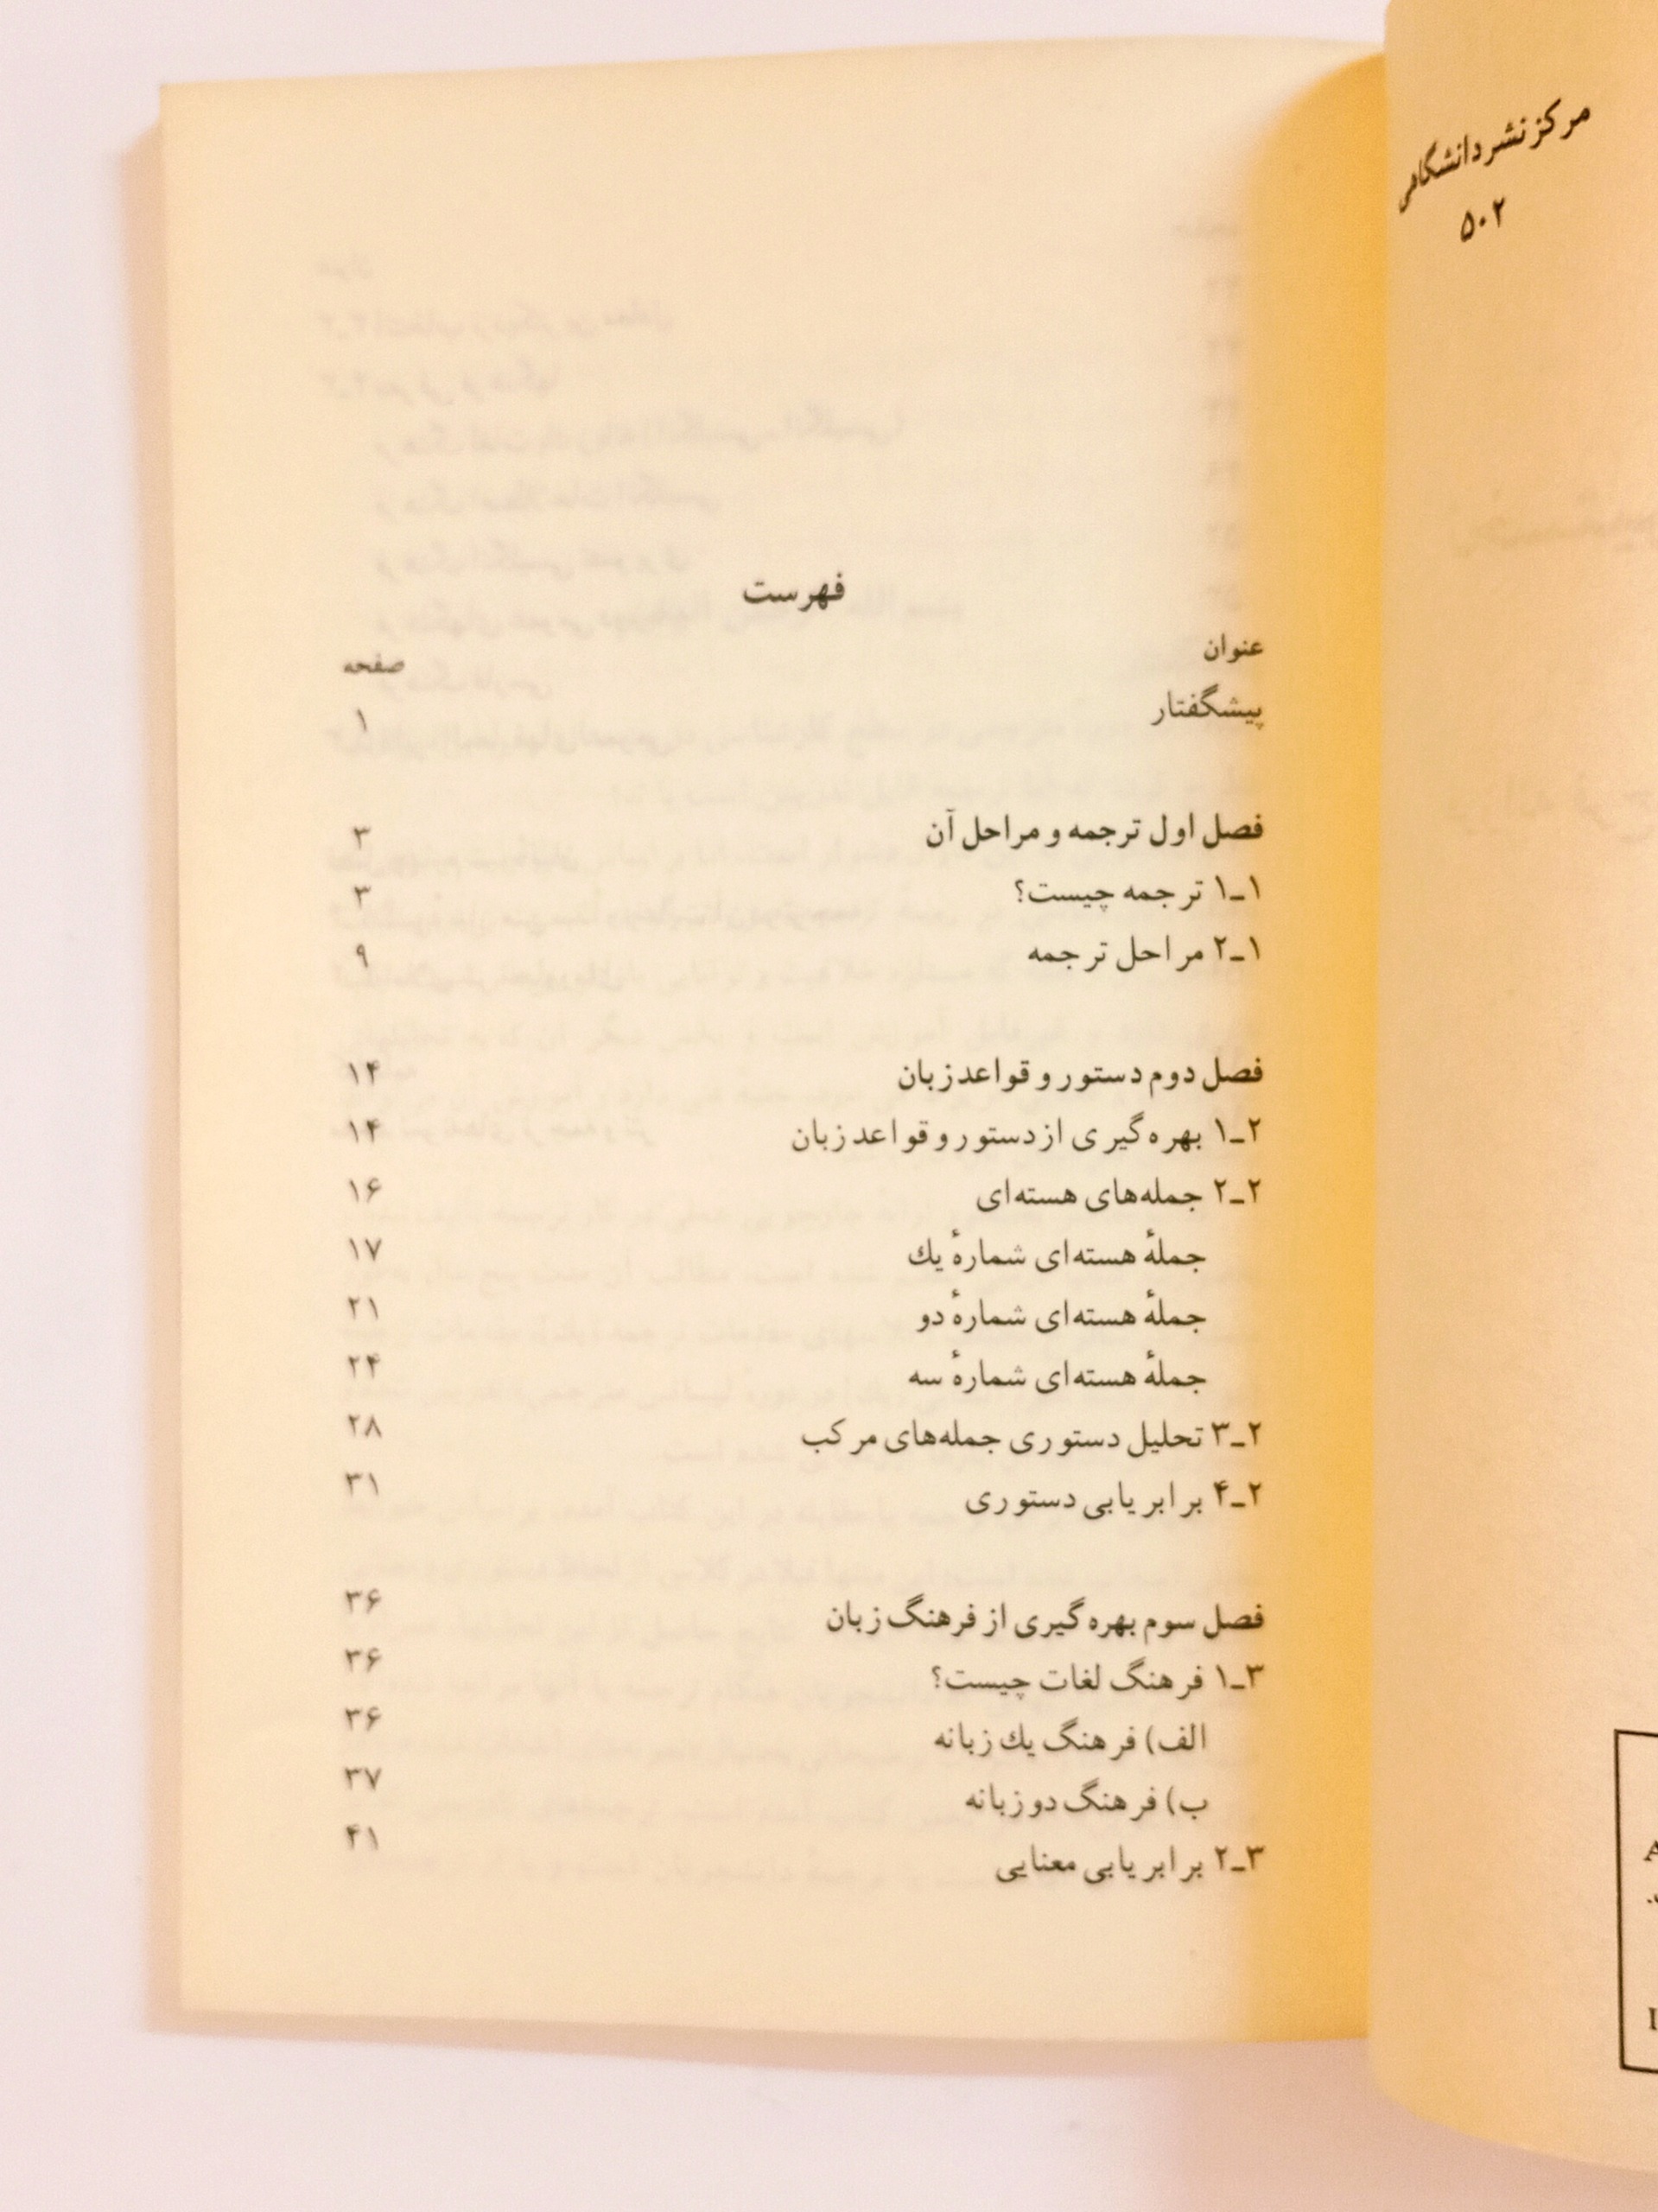 مرکز نشر دانشگاهی
۵۰۲
فهرست
عنوان صفحه
پیشگفتار ۱
فصل اول ترجمه و مراحل آن ۳
۱ـ۱ ترجمه چیست؟ ۳
۱ـ۲ مراحل ترجمه ۹
فصل دوم دستور و قواعد زبان ۱۴
۲ـ۱ بهره‌گیری از دستور و قواعد زبان ۱۴
۲ـ۲ جمله‌های هسته‌ای ۱۶
جملهٔ هسته‌ای شمارهٔ یك ۱۷
جملهٔ هسته‌ای شمارهٔ دو ۲۱
جملهٔ هسته‌ای شمارهٔ سه ۲۴
۲ـ۳ تحلیل دستوری جمله‌های مرکب ۲۸
۲ـ۴ برابریابی دستوری ۳۱
فصل سوم بهره‌گیری از فرهنگ زبان ۳۶
۳ـ۱ فرهنگ لغات چیست؟ ۳۶
الف) فرهنگ یك زبانه ۳۶
ب) فرهنگ دو زبانه ۳۷
۳ـ۲ برابریابی معنایی ۴۱